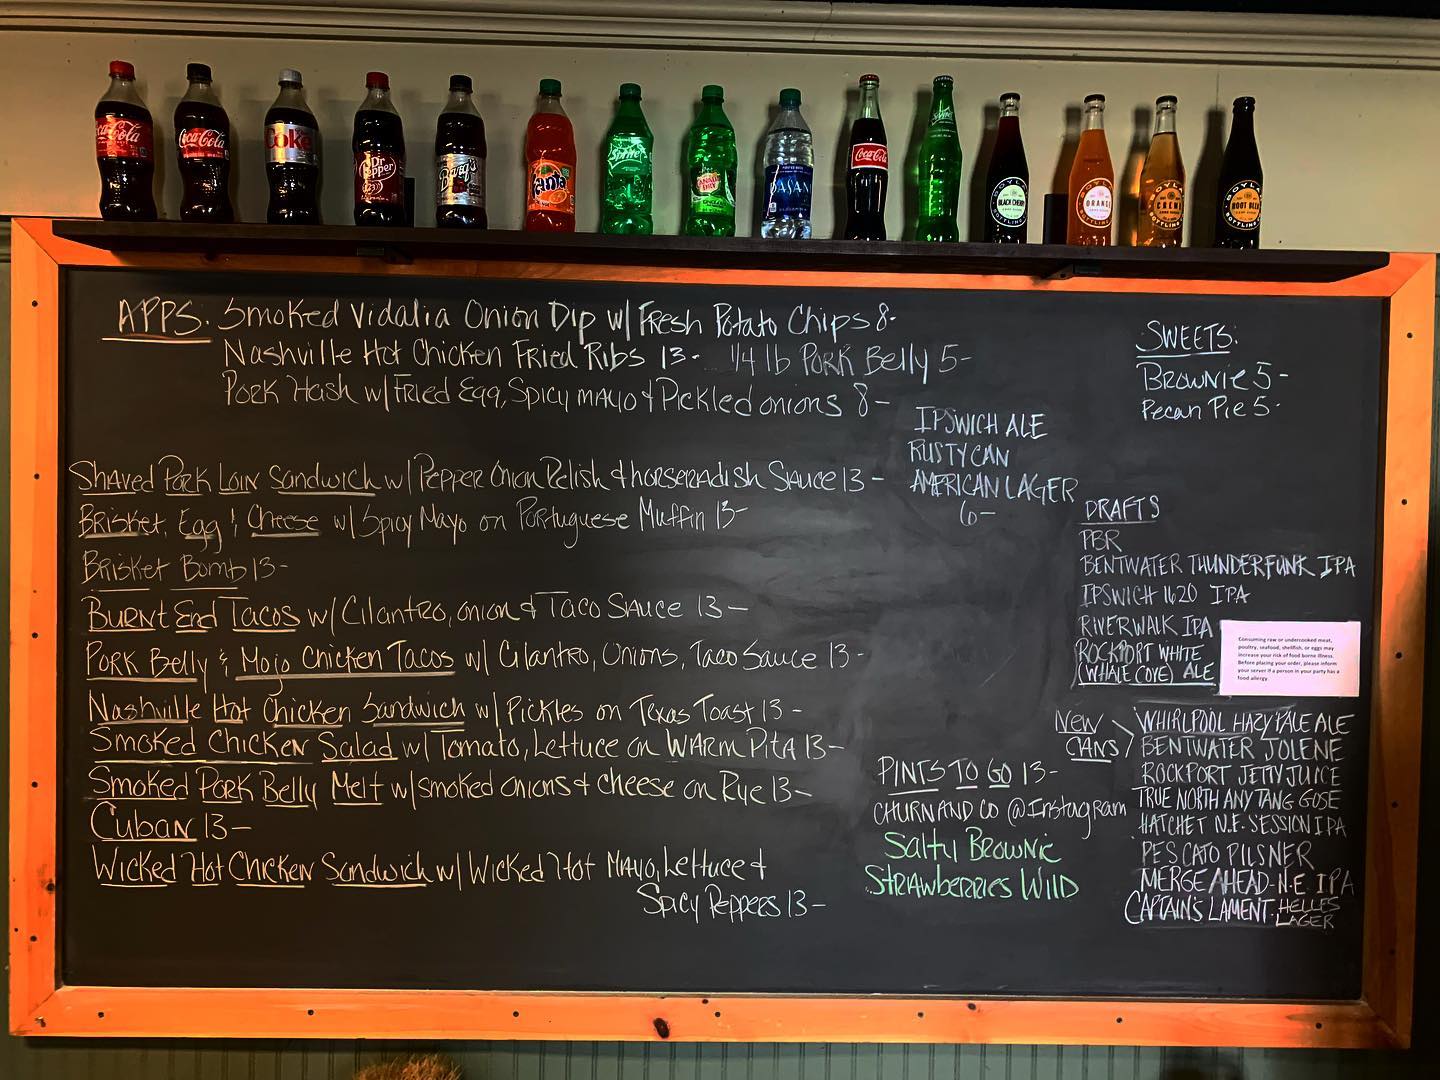 Coca-Cola
Coca-Cola
Diet
Coke
Dr Pepper
23
Barq's
Fanta
Sprite
CANADA DRY
DASANI
Coca-Cola
Sprite
BOYLAN BLACK CHERRY BOTTLING
BOYLAN ORANGE BOTTLING
BOYLAN CREME BOTTLING
BOYLAN ROOT BEER BOTTLING
APPS: Smoked Vidalia Onion Dip w/ Fresh Potato Chips 8-
Nashville Hot Chicken Fried Ribs 13- 1/4 lb Pork Belly 5-
Pork Hash w/ Fried Egg, Spicy mayo & Pickled onions 8-
SWEETS:
Brownie 5-
Pecan Pie 5-
IPSWICH ALE
RUSTY CAN
AMERICAN LAGER
6-
Shaved Pork Loin Sandwich w/ Pepper Onion Relish & horseradish Sauce 13-
Brisket, Egg & Cheese w/ Spicy Mayo on Portuguese Muffin 13-
Brisket Bomb 13-
Burnt End Tacos w/ Cilantro, onion & Taco Sauce 13-
Pork Belly & Mojo Chicken Tacos w/ Cilantro, Onions, Taco Sauce 13-
Nashville Hot Chicken Sandwich w/ Pickles on Texas Toast 13-
Smoked Chicken Salad w/ Tomato, Lettuce on Warm Pita 13-
Smoked Pork Belly Melt w/ smoked onions & cheese on Rye 13-
Cuban 13-
Wicked Hot Chicken Sandwich w/ Wicked Hot Mayo, Lettuce &
Spicy Peppers 13-
DRAFTS
PBR
BENTWATER THUNDERFUNK IPA
IPSWICH 1620 IPA
RIVERWALK IPA
ROCKPORT WHITE
(WHALE COVE) ALE
Consuming raw or undercooked meat,
poultry, seafood, shellfish, or eggs may
increase your risk of food borne illness.
Before placing your order, please inform
your server if a person in your party has a
food allergy.
NEW
CANS
WHIRLPOOL HAZY PALE ALE
BENTWATER JOLENE
ROCKPORT JETTY JUICE
TRUE NORTH ANY TANG GOSE
HATCHET N.E. SESSION IPA
PESCATO PILSNER
MERGE AHEAD-N.E. IPA
CAPTAIN'S LAMENT-HELLES
LAGER
PINTS TO GO 13-
CHURN AND CO @Instagram
Salty Brownie
Strawberries Wild